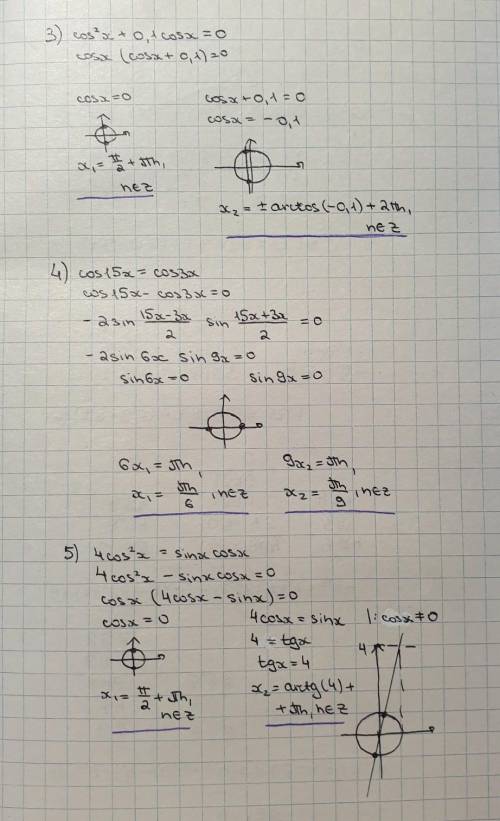 3) cos²x + 0,1cosx = 0
cosx (cosx + 0,1) = 0
cosx = 0
x₁ = π/2 + πn,
n∈Z
cosx + 0,1 = 0
cosx = -0,1
x₂ = ± arctos(-0,1) + 2πn,
n∈Z
4) cos15x = cos3x
cos15x - cos3x = 0
-2sin (15x-3x)/2 sin (15x+3x)/2 = 0
-2sin 6x sin 9x = 0
sin6x = 0 sin9x = 0
6x₁ = πn, 9x₂ = πn,
x₁ = πn/6, n∈Z x₂ = πn/9, n∈Z
5) 4cos²x = sinx cosx
4cos²x - sinx cosx = 0
cosx (4cosx - sinx) = 0
cosx = 0
x₁ = π/2 + πn,
n∈Z
4cosx = sinx |: cosx ≠ 0
4 = tgx
tgx = 4
x₂ = arctg(4) +
+ πn, n∈Z
4